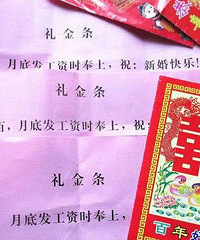 礼金条
月底发工资时奉上，祝：新婚快乐！
礼金条
月底发工资时奉上，祝：
礼金条
月底发工资时奉上，
囍
百年